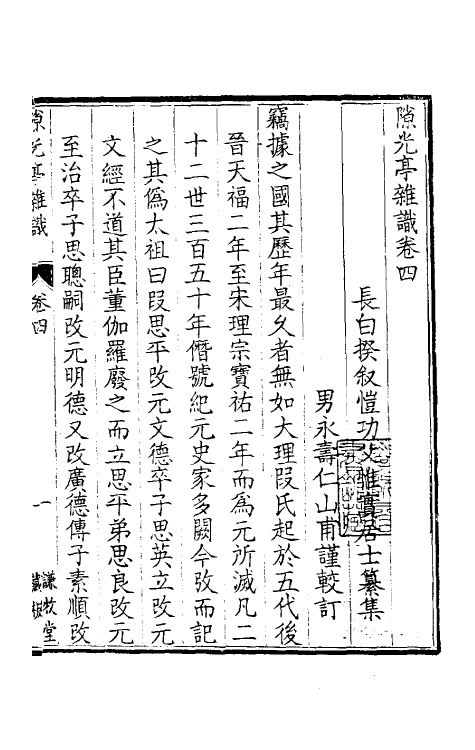 隙光亭雜識卷四
長白揆叙愷功父惟實居士纂集
男永壽仁山甫謹較訂
竊據之國其歷年最久者無如大理段氏起於五代後
晉天福二年至宋理宗寶祐二年而為元所滅凡二
十二世三百五十年僭號紀元史家多闕今攷而記
之其偽太祖曰段思平改元文德卒子思英立改元
文經不道其臣董伽羅廢之而立思平弟思良改元
至治卒子思聰嗣改元明德又改廣德傳子素順改
隙光亭雜識
卷四
一
謙牧堂
藏板